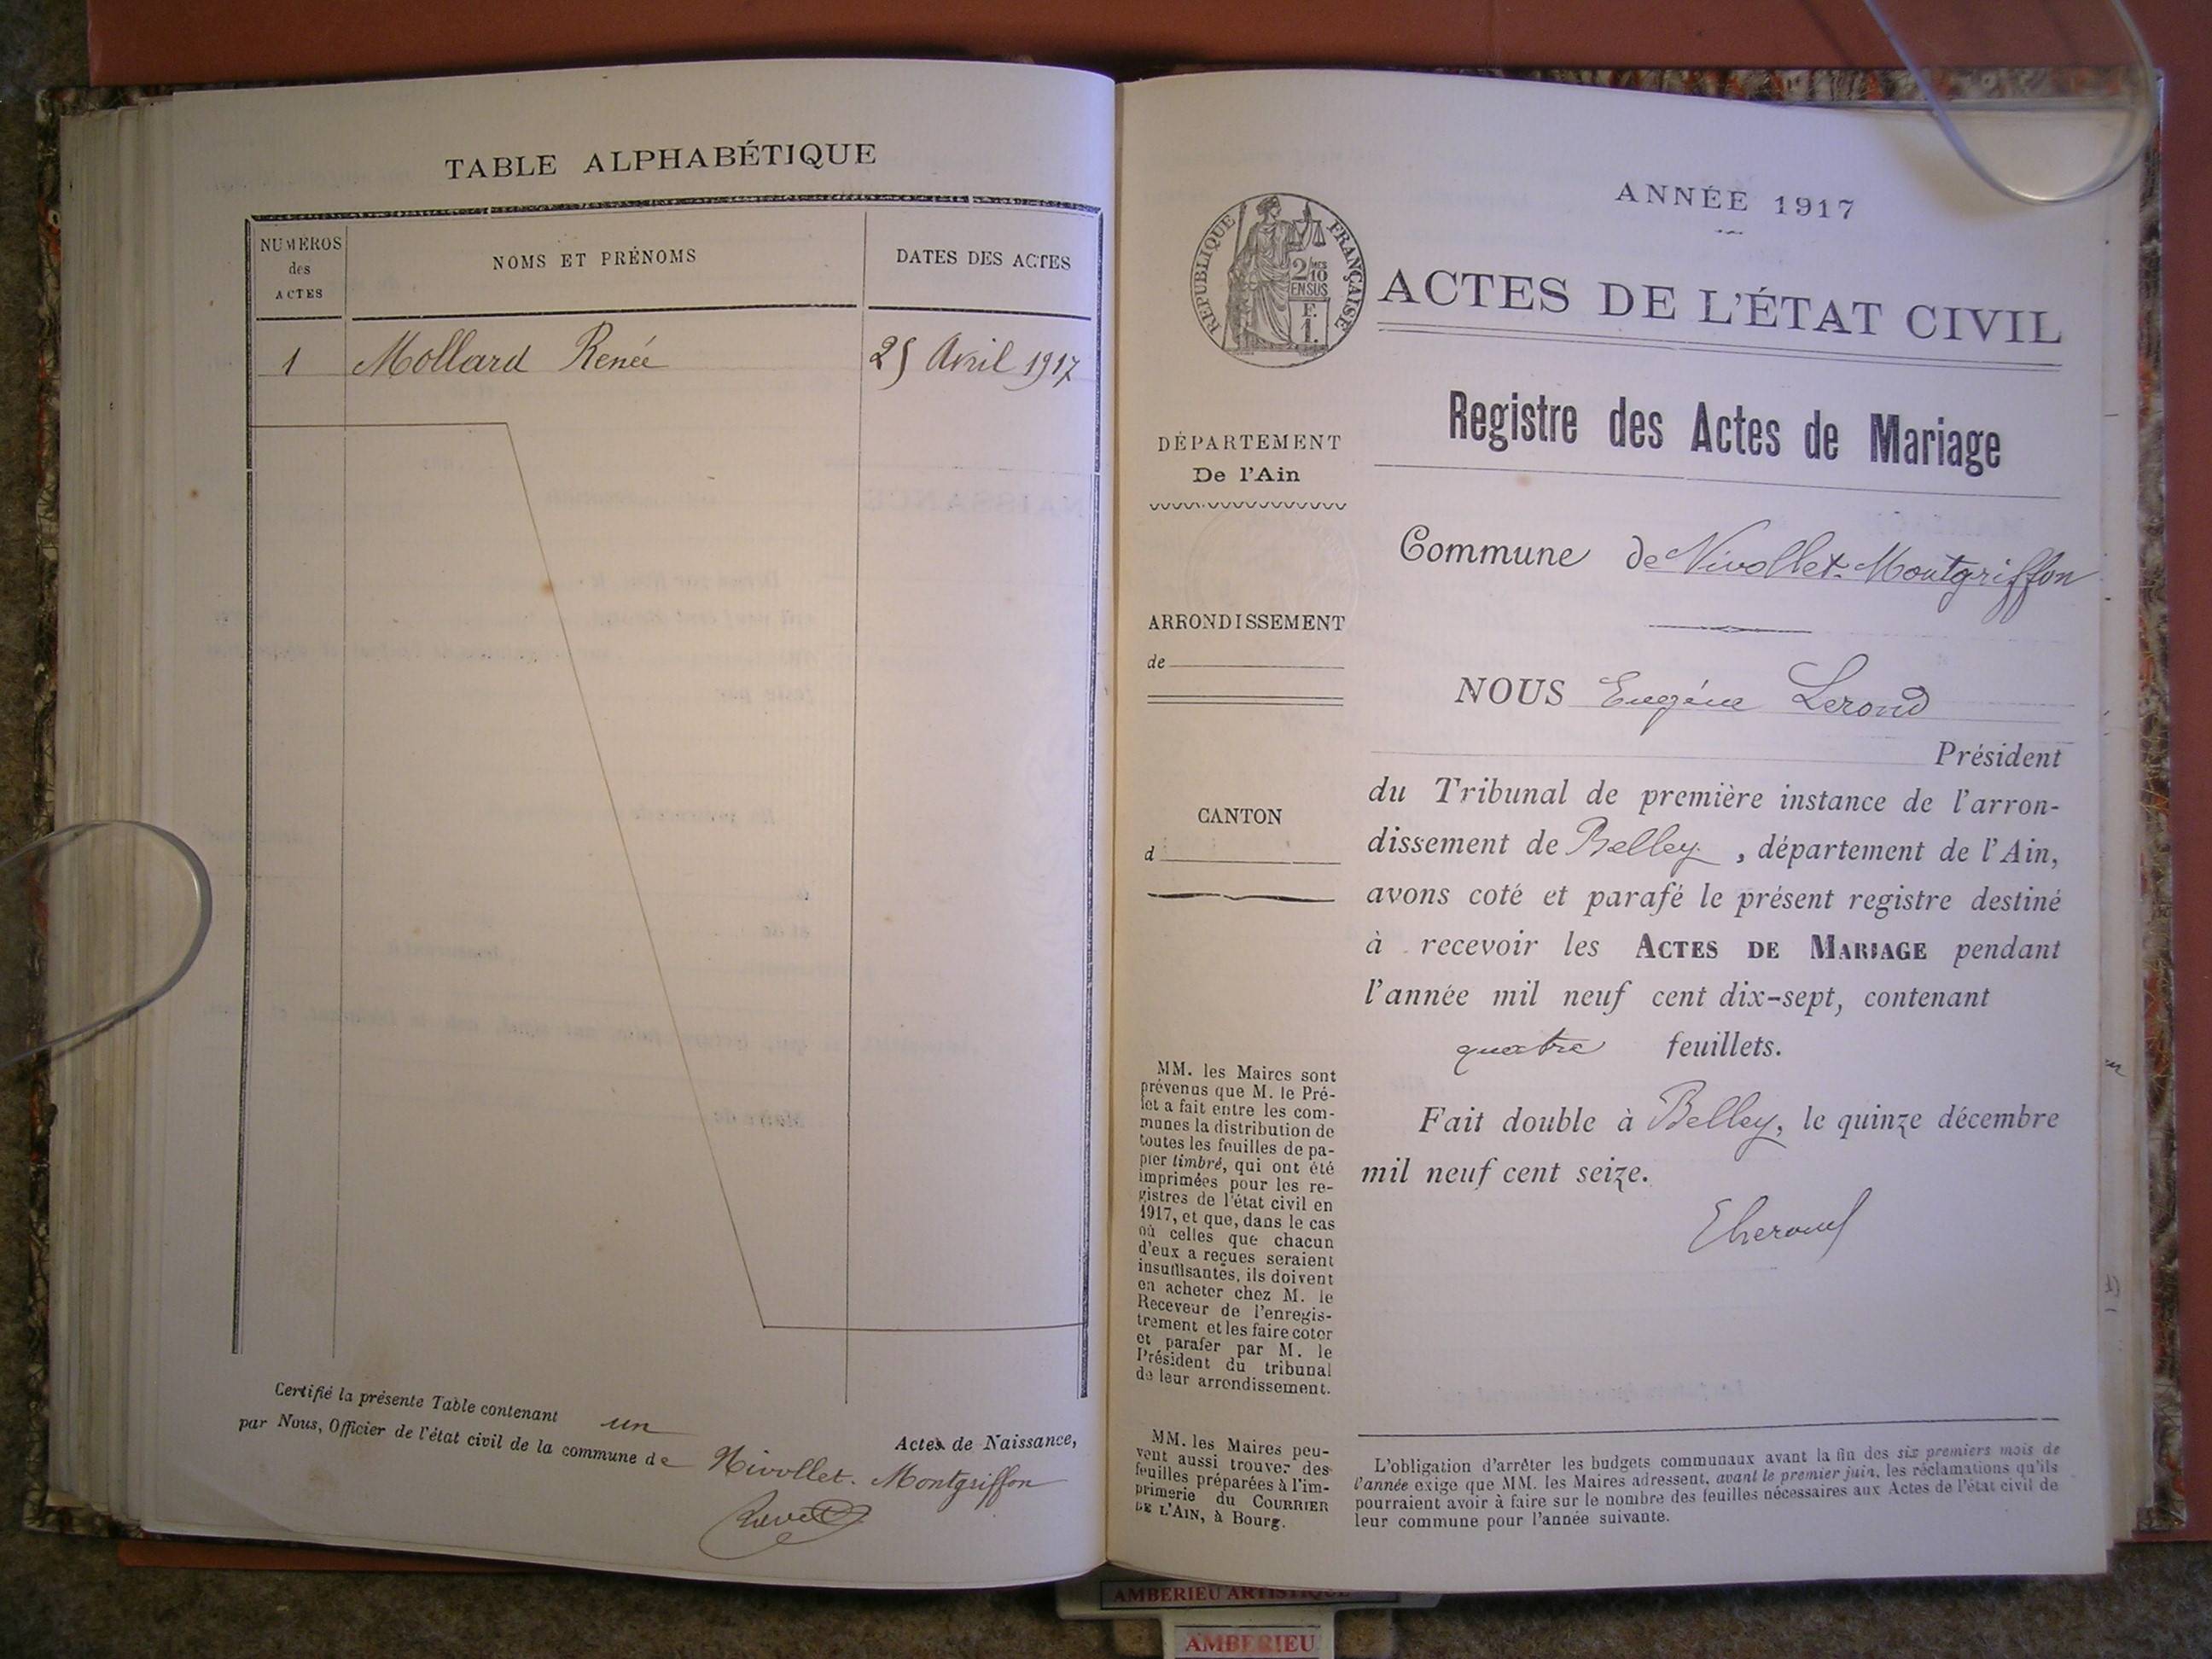 TABLE ALPHABÉTIQUE
NUMÉROS
des
ACTES
NOMS ET PRÉNOMS
DATES DES ACTES
1 Mollard Renée 25 Avril 1917
Certifié la présente Table contenant un Actes de Naissance,
par Nous, Officier de l'état civil de la commune de Nivollet-Montgriffon
ANNÉE 1917
RÉPUBLIQUE FRANÇAISE
2/10
EN SUS
F.
1.
ACTES DE L'ÉTAT CIVIL
Registre des Actes de Mariage
DÉPARTEMENT
De l'Ain
ARRONDISSEMENT
de
CANTON
d
Commune de Nivollet-Montgriffon
NOUS Eugène Lerond
Président
du Tribunal de première instance de l'arron-
dissement de Belley, département de l'Ain,
avons coté et parafé le présent registre destiné
à recevoir les ACTES DE MARIAGE pendant
l'année mil neuf cent dix-sept, contenant
quatre feuillets.
Fait double à Belley, le quinze décembre
mil neuf cent seize.
MM. les Maires sont
prévenus que M. le Pré-
fet a fait entre les com-
munes la distribution de
toutes les feuilles de pa-
pier timbré, qui ont été
imprimées pour les re-
gistres de l'état civil en
1917, et que, dans le cas
où celles que chacun
d'eux a reçues seraient
insuffisantes, ils doivent
en acheter chez M. le
Receveur de l'enregis-
trement et les faire coter
et parafer par M. le
Président du tribunal
de leur arrondissement.
MM. les Maires peu-
vent aussi trouver des
feuilles préparées à l'im-
primerie du COURRIER
DE L'AIN, à Bourg.
L'obligation d'arrêter les budgets communaux avant la fin des six premiers mois de
l'année exige que MM. les Maires adressent, avant le premier juin, les réclamations qu'ils
pourraient avoir à faire sur le nombre des feuilles nécessaires aux Actes de l'état civil de
leur commune pour l'année suivante.
AMBERIEU ARTISTIQUE
AMBERIEU